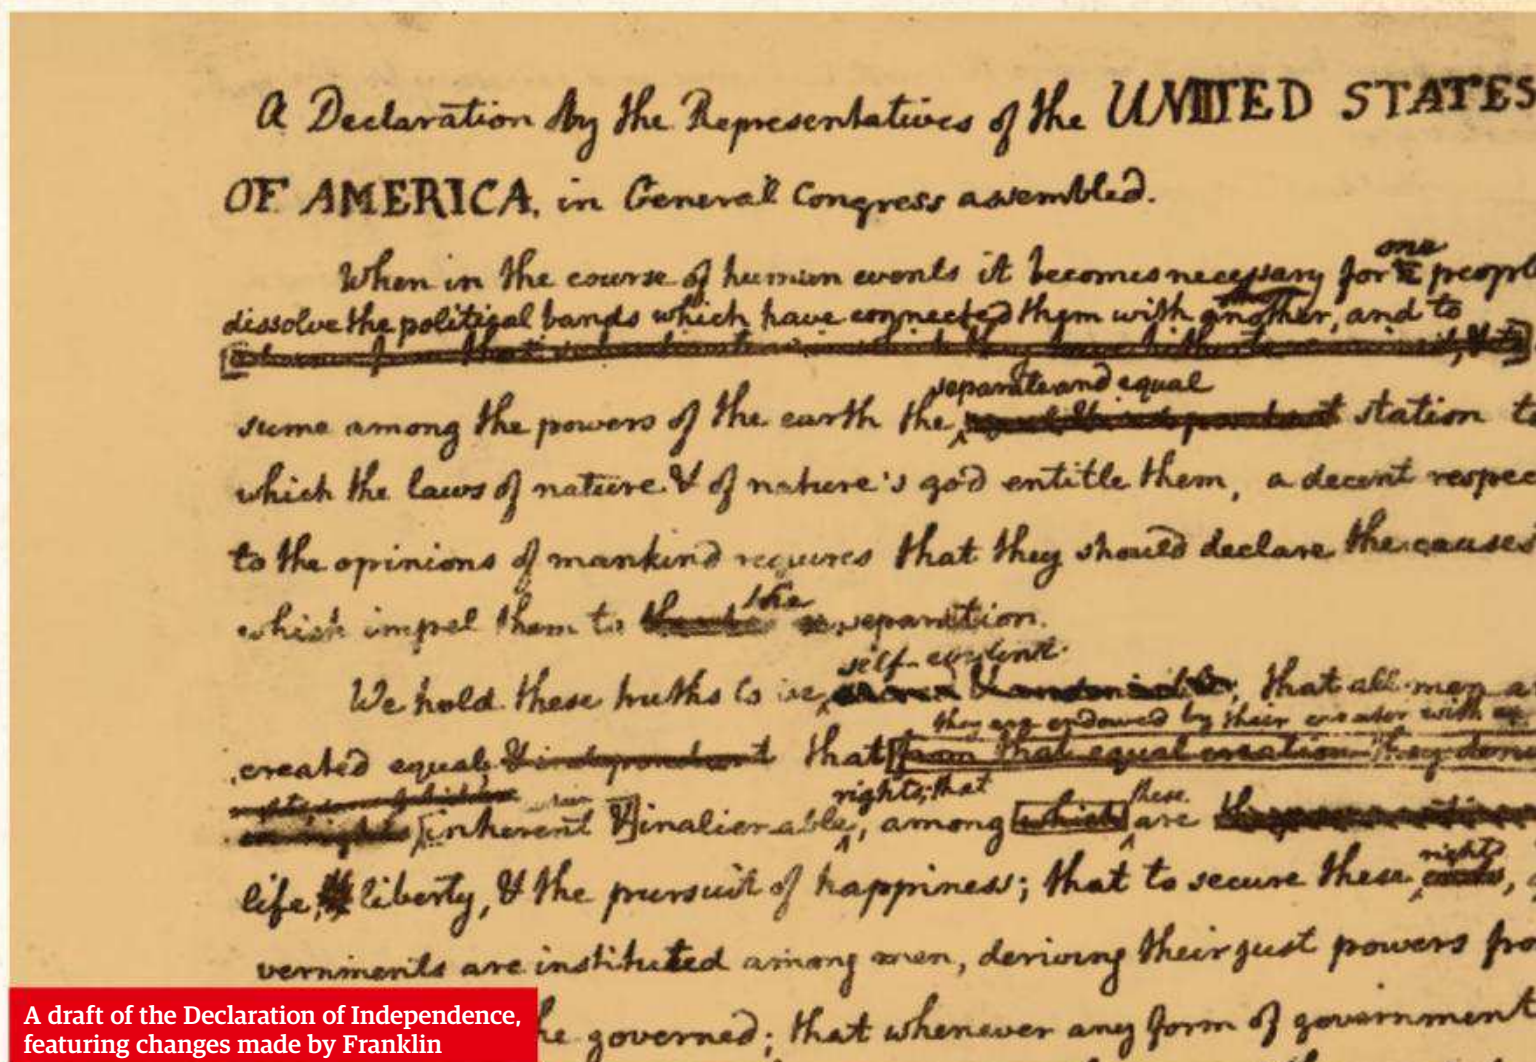 A Declaration by the Representatives of the UNITED STATES
OF AMERICA, in General Congress assembled.
one
When in the course of human events it becomes necessary for a peopl
dissolve the political bands which have connected them with another, and to
separate and equal
sume among the powers of the earth the station to
which the laws of nature & of nature's god entitle them, a decent respec
to the opinions of mankind requires that they should declare the causes
the
which impel them to separation.
self-evident
We hold these truths to be that all men a
they are endowed by their creator with
created equal & independent that from that equal creation they
rights; that
these
inherent & inalienable, among which are
life, liberty, & the pursuit of happiness; that to secure these
rights
vernments are instituted among men, deriving their just powers fro
he governed; that whenever any form of government
A draft of the Declaration of Independence,
featuring changes made by Franklin